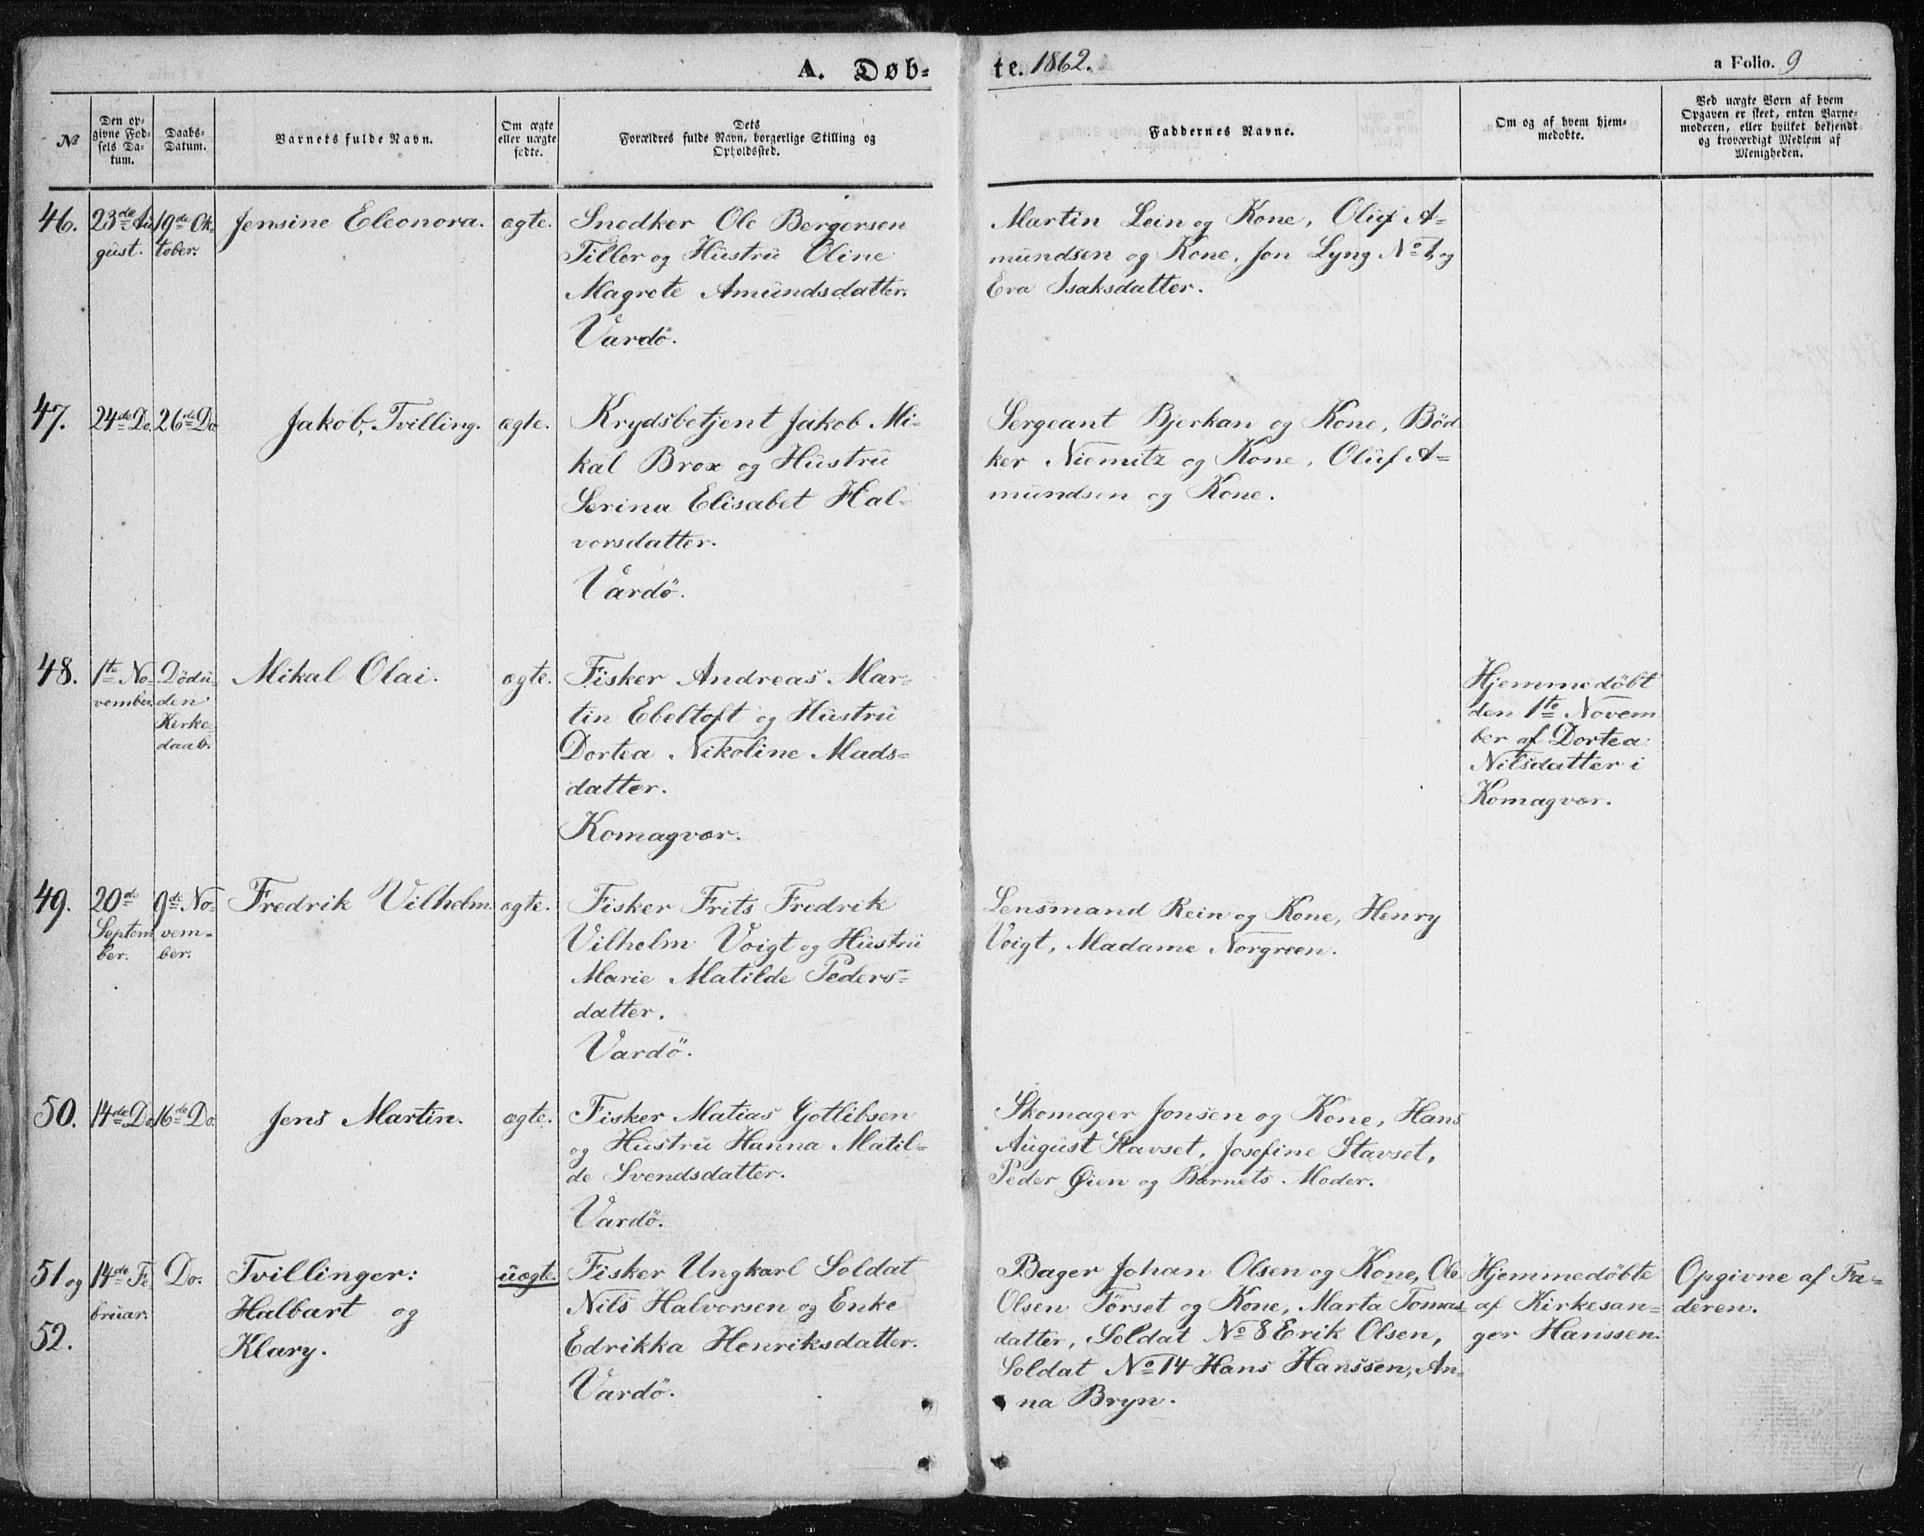 A. Døb-
te. 1862.
a Folio. 9
№
Den op-
givne Fød-
sels Da-
tum.
Daabs-
Datum.
Barnets fulde Navn.
Om ægte
eller uægte
fødte.
Dets
Forældres fulde Navn, borgerlige Stilling og
Opholdssted.
Faddernes Navne.
Om og af hvem hjem-
medøbte.
Ved uægte Børn af hvem
Opgaven er skeet, enten Barne-
moderen, eller hvilket bekjendt
og troværdigt Medlem af
Menigheden.
46.
23de Au
gust.
19de Ok-
tober.
Jensine Eleonora.
ægte.
Snedker Ole Bergersen
Tiller og Hustru Oline
Magrete Amundsdatter.
Vardö.
Martin Lein og Kone, Oluf A=
mundsen og Kone, Jon Lyng No 1, og
Eva Isaksdatter.
47.
24de Do.
26de Do
Jakob, Tvilling.
ægte.
Krydsbetjent Jakob Mi-
kal Brox og Hustru
Serina Elisabet Hal-
vorsdatter.
Vardö.
Sergeant Bjerkan og Kone, Böd
ker Niemitz og Kone, Oluf A=
mundsen og Kone.
48.
1te No-
vember.
Dödu-
den
Kirke
daab.
Mikal Olai.
ægte.
Fisker Andreas Mar-
tin Ebeltoft og Hustru
Dortea Nikoline Mads-
datter.
Komagvær.
Hjemmedöbt
den 1te Novem
ber af Dortea
Nilsdatter i
Komagvær.
49.
20de
Septem
ber.
9de No-
vem-
ber.
Fredrik Vilhelm
ægte.
Fisker Frits Fredrik
Vilhelm Voigt og Hustru
Marie Matilde Peders-
datter.
Vardö.
Lensmand Rein og Kone, Henry
Voigt, Madame Norgreen.
50.
14de Do
16de Do.
Jens Martin.
ægte.
Fisker Matias Gotlibsen
og Hustru Hanna Matil-
de Svendsdatter.
Vardö.
Skomager Jonsen og Kone, Hans
August Stavset, Josefine Stavset,
Peder Øien og Barnets Moder.
51 og
52.
14de Fe
bruar.
Do.
Tvillinger:
Halbart og
Klary.
uægte.
Fisker Ungkarl Soldat
Nils Halvorsen og Enke
Edrikka Henriksdatter.
Vardö.
Bager Johan Olsen og Kone, Ole
Olsen Törset og Kone, Marta Tomas
datter, Soldat No 8 Erik Olsen,
Soldat No 14 Hans Hanssen, An-
na Bryn.
Hjemmedöbte
af Kirkesan-
ger Hanssen.
Opgivne af Fa-
deren.